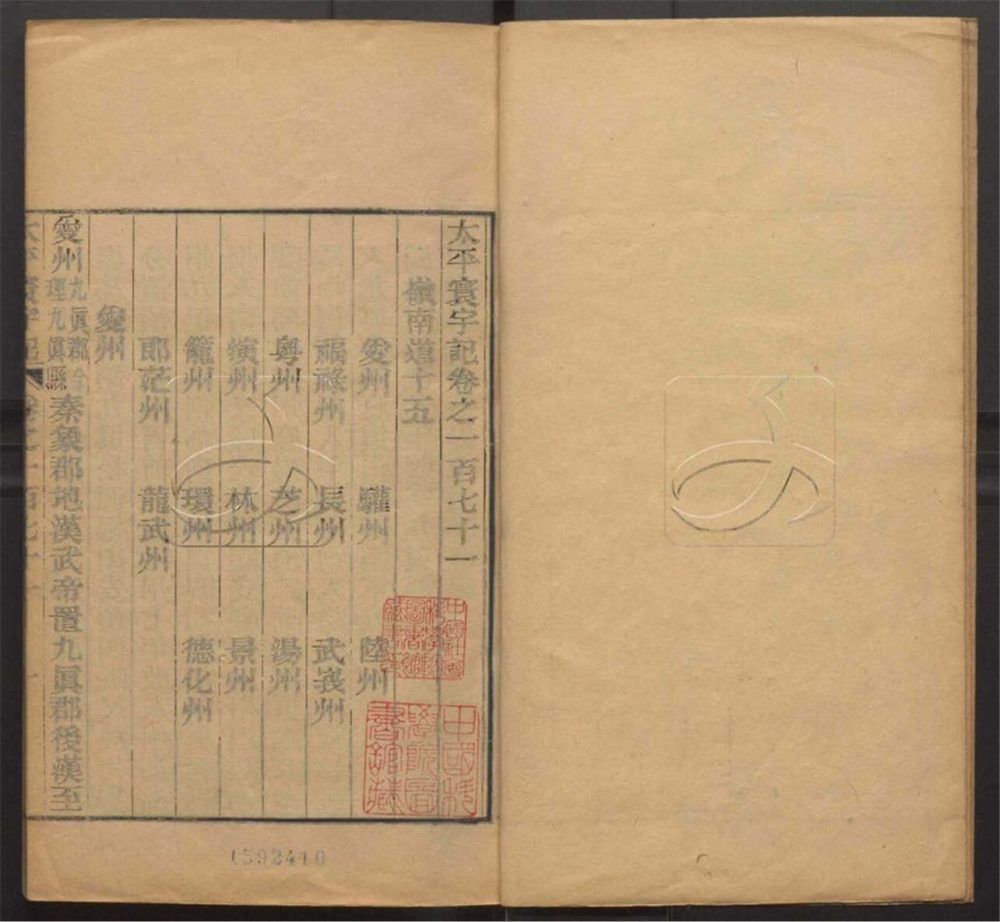 太平寰宇記卷之一百七十一
嶺南道十五
愛州 驩州 陸州
福祿州 長州 武峩州
粵州 芝州 湯州
演州 林州 景州
籠州 環州 德化州
郎茫州 龍武州
愛州
愛州九眞郡今理九眞縣秦象郡地漢武帝置九眞郡後漢至
太平寰宇記 卷之一百七十一 一
1592410